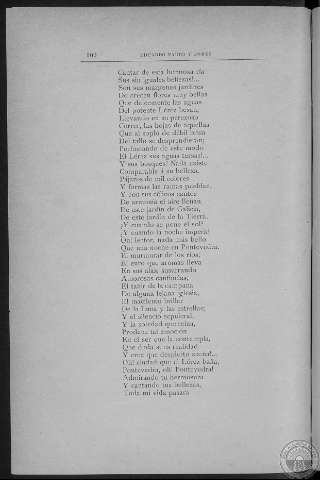 EDUARDO
Cantar de esta hermosa ría
Sus sin iguales bellezas!...
Son sus márgenes jardines
De crecen flores muy bellas
Que de contento las aguas
Del potente Lérez besan,
Llevando en su perezoso
Curso, las hojas de aquellas
Que al soplo de débil brisa
Del tallo se desprendieran;
Perfumando de este modo
El Lérez sus aguas tersas!...
Y sus bosques? Nada existe
Comparable a su belleza,
Pájaros de mil colores
Y formas las ramas pueblan,
Y con sus cantos
De armonía el aire llenan
De este jardín de Galicia,
De este jardín de la Tierra.
¿Y cuando se pone el sol?
¿Y cuando la noche impera?
Oh! lector, nada más bello
Que una noche en Pontevedra.
El murmurar de los ríos;
El euro que aromas lleva
En sus alas, susurrando
Amorosas cantinelas;
El tañir de la campana
De alguna lejana iglesia,
El macilento brillar
De la Luna y las estrellas;
Y el silencio sepulcral,
Y la soledad que reina,
Produce tal emoción
En el ser que la contempla,
Que duda si es realidad
Y cree que despierto sueña!...
Oh! ciudad que el Lérez baña,
Pontevedra, oh! Pontevedra!
Admirando tu hermosura
Y cantando tus bellezas,
Toda mi vida pasara